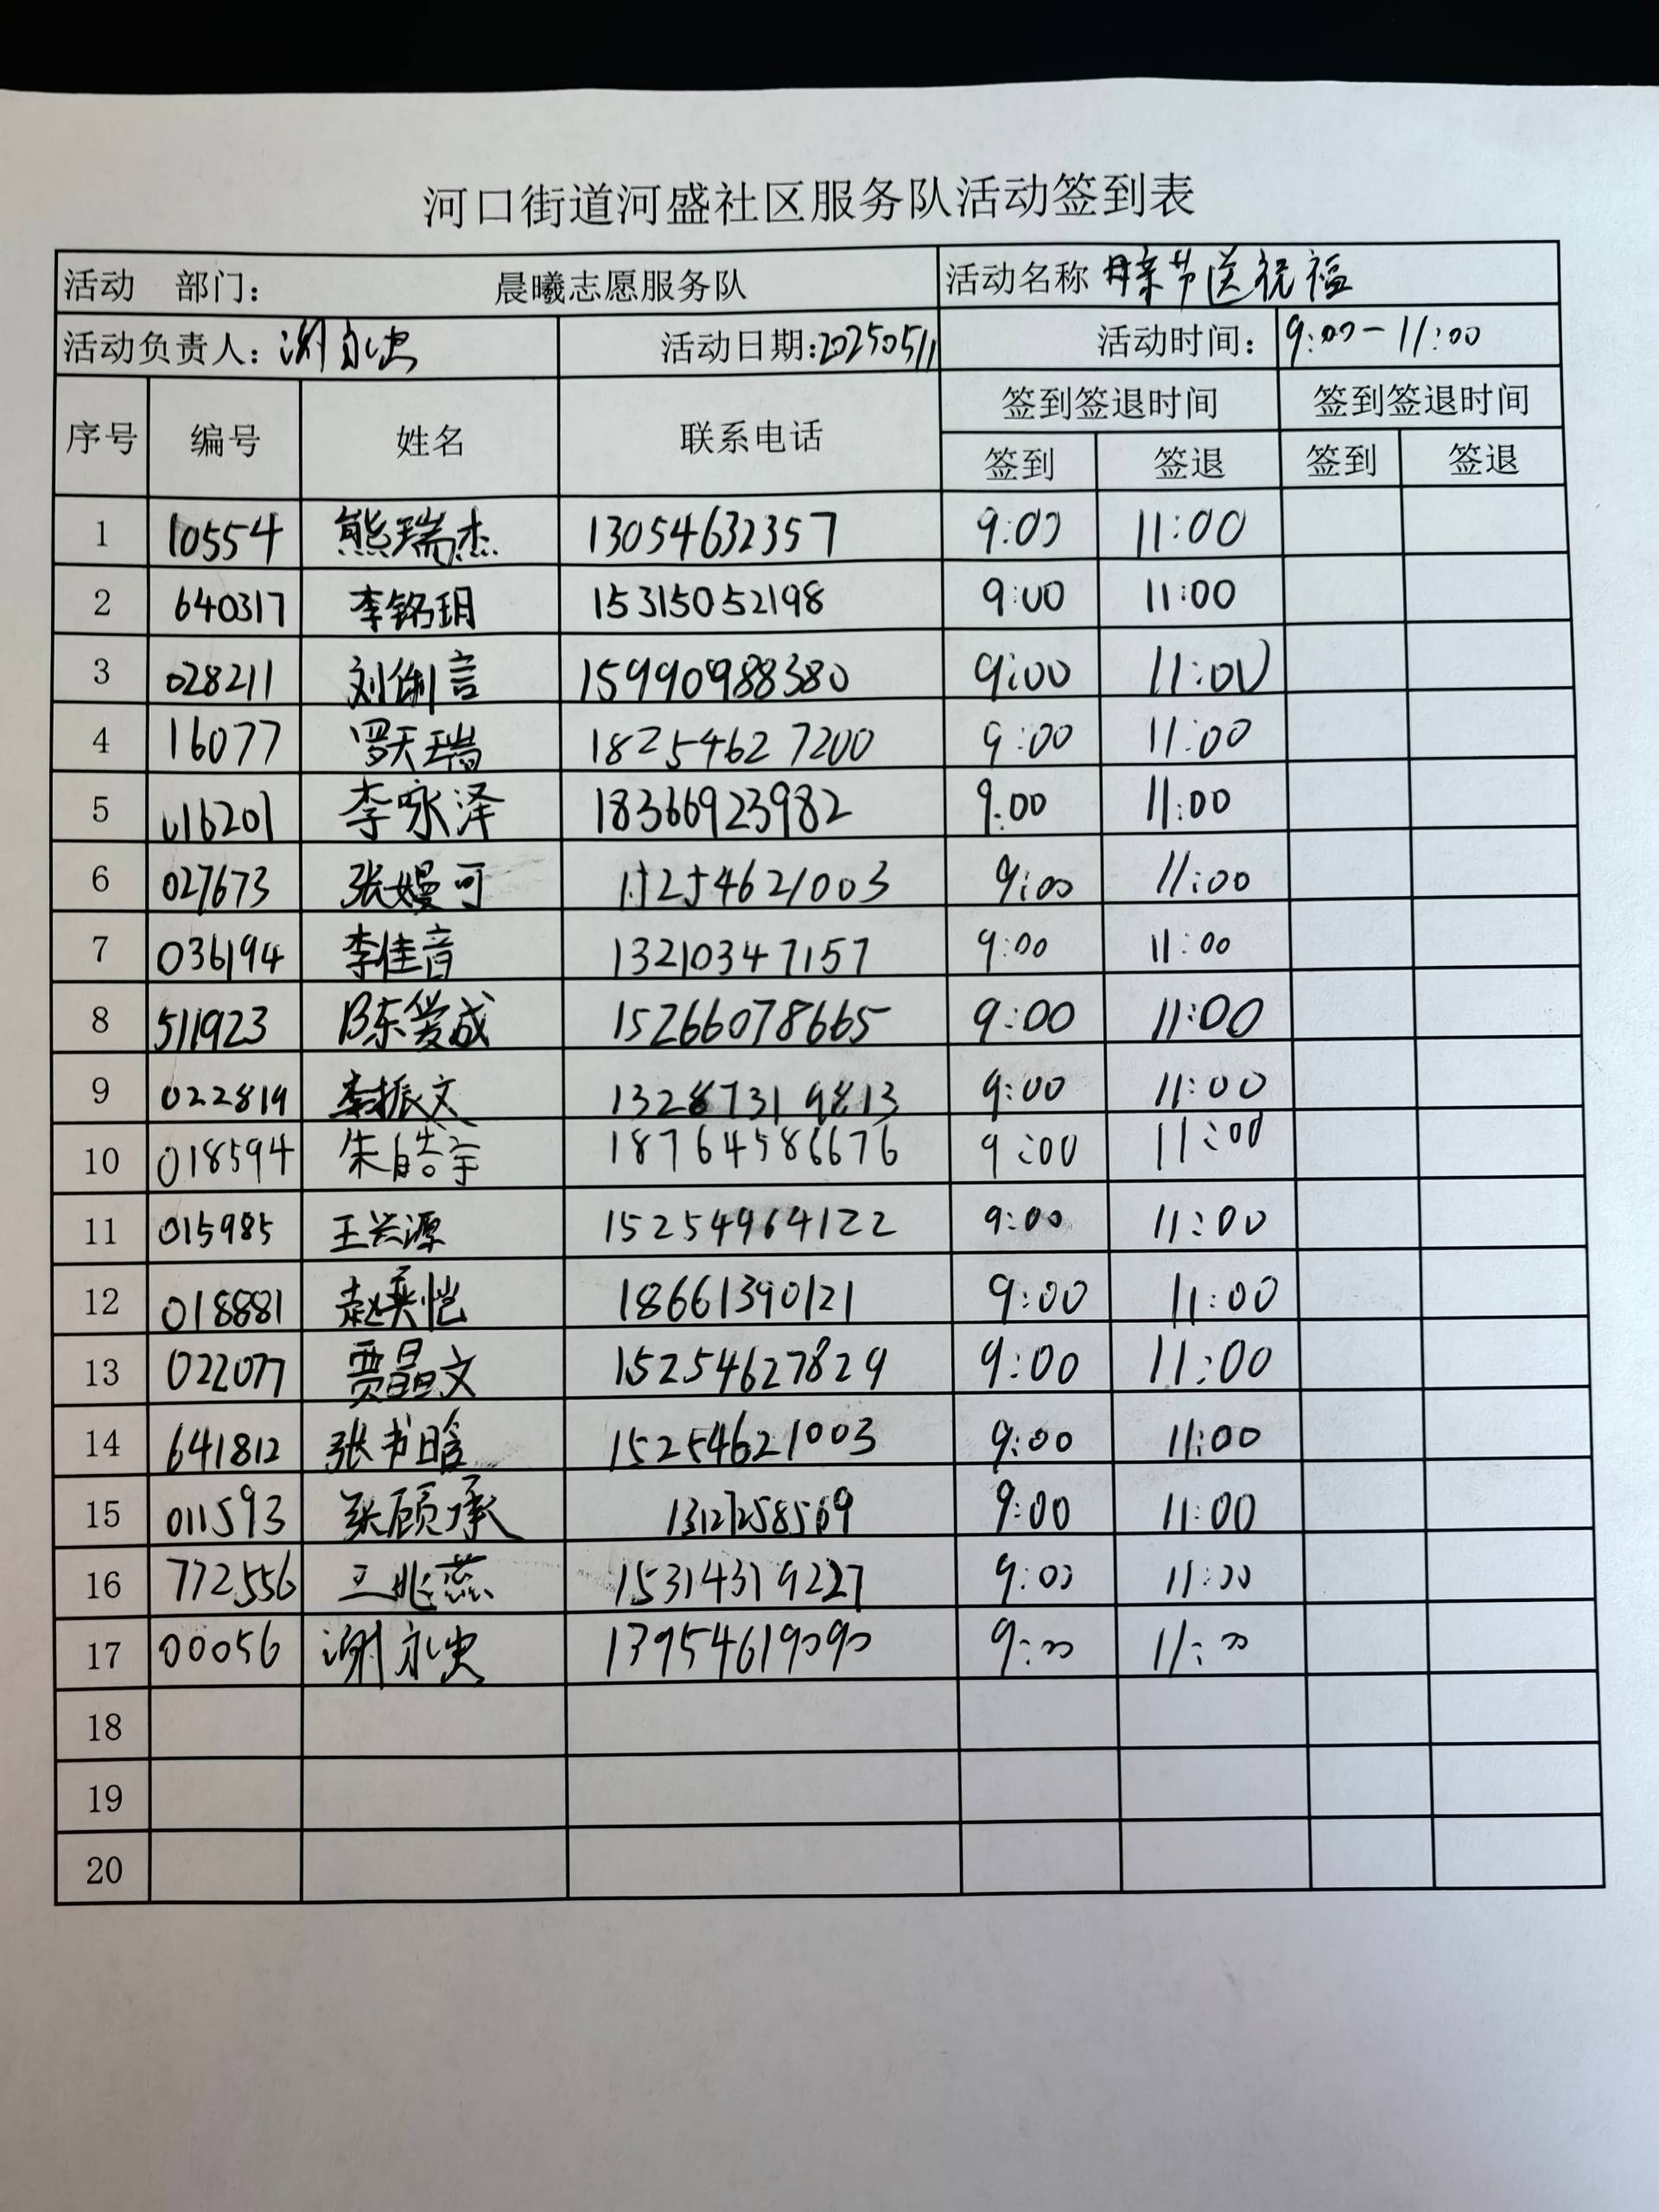 河口街道河盛社区服务队活动签到表
活动 部门： 晨曦志愿服务队 活动名称 母亲节送祝福
活动负责人：谢永忠 活动日期：20250511 活动时间： 9:00-11:00
序号 编号 姓名 联系电话 签到签退时间 签到签退时间
签到 签退 签到 签退
1 10554 熊瑞杰 13054632357 9:00 11:00
2 640317 李铭玥 15315052198 9:00 11:00
3 028211 刘俐言 159990988380 9:00 11:00
4 16077 罗天瑞 18254627200 9:00 11:00
5 016201 李咏泽 18366923982 9:00 11:00
6 027673 张嫚可 15254621003 9:00 11:00
7 036194 李佳音 13210347157 9:00 11:00
8 511923 陈爱成 15266078665 9:00 11:00
9 022819 李振文 13287319813 9:00 11:00
10 018594 朱皓宇 18764586676 9:00 11:00
11 015985 王兴源 15254964122 9:00 11:00
12 018881 赵奕恺 18661390121 9:00 11:00
13 022077 贾晶文 15254627829 9:00 11:00
14 641812 张书晗 15254621003 9:00 11:00
15 011593 张顾承 9:00 11:00
16 772556 王兆燕 15314319227 9:00 11:00
17 00056 谢永忠 13954619090 9:00 11:00
18
19
20